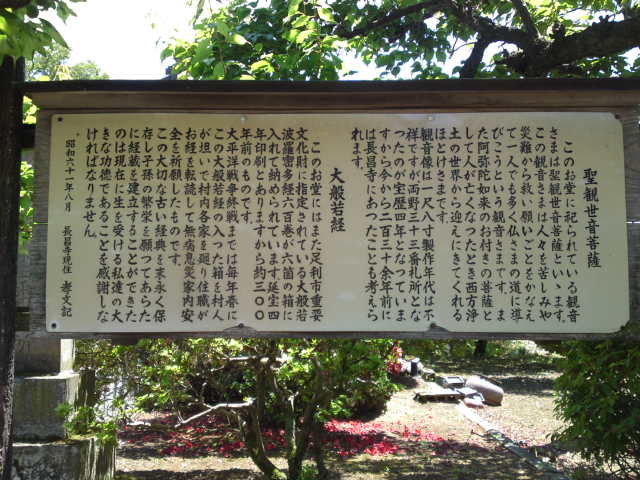 聖観世音菩薩
このお堂に祀られている観音
さまは聖観世音菩薩といゝます。
この観音さまは人々を苦しみや
災難から救い願いごとをかなえ
て一人でも多く仏さまの道に導
びこうという観音さまです。ま
た阿弥陀如来のお付きの菩薩と
して人が亡くなったとき西方浄
土の世界から迎えにきてくれる
ほとけさまです。
観音像は一尺八寸製作年代は不
祥ですが両野三十三番札所とな
ったのが宝暦四年となっていま
すから今から二百三十余年前に
は長昌寺にあったことも考えら
れます。
大般若経
このお堂にはまた足利市重要
文化財に指定されている大般若
波羅密多経六百巻が六箇の箱に
入れて納められています。延宝四
年印刷とありますから約三〇〇
年前のものです。
太平洋戦争終戦までは毎年春に
この大般若経の入った箱を村人
が担いで村内各家を廻り住職が
お経を転読して無病息災家内安
全を祈願したものです。
この大切な古い経典を末永く保
存し子孫の繁栄を願ってあらた
に経蔵を建立することができた
のは現在に生を受ける私達の大
きな功徳であることを感謝しな
ければなりません。
昭和六十一年八月　長昌寺現住　孝文記